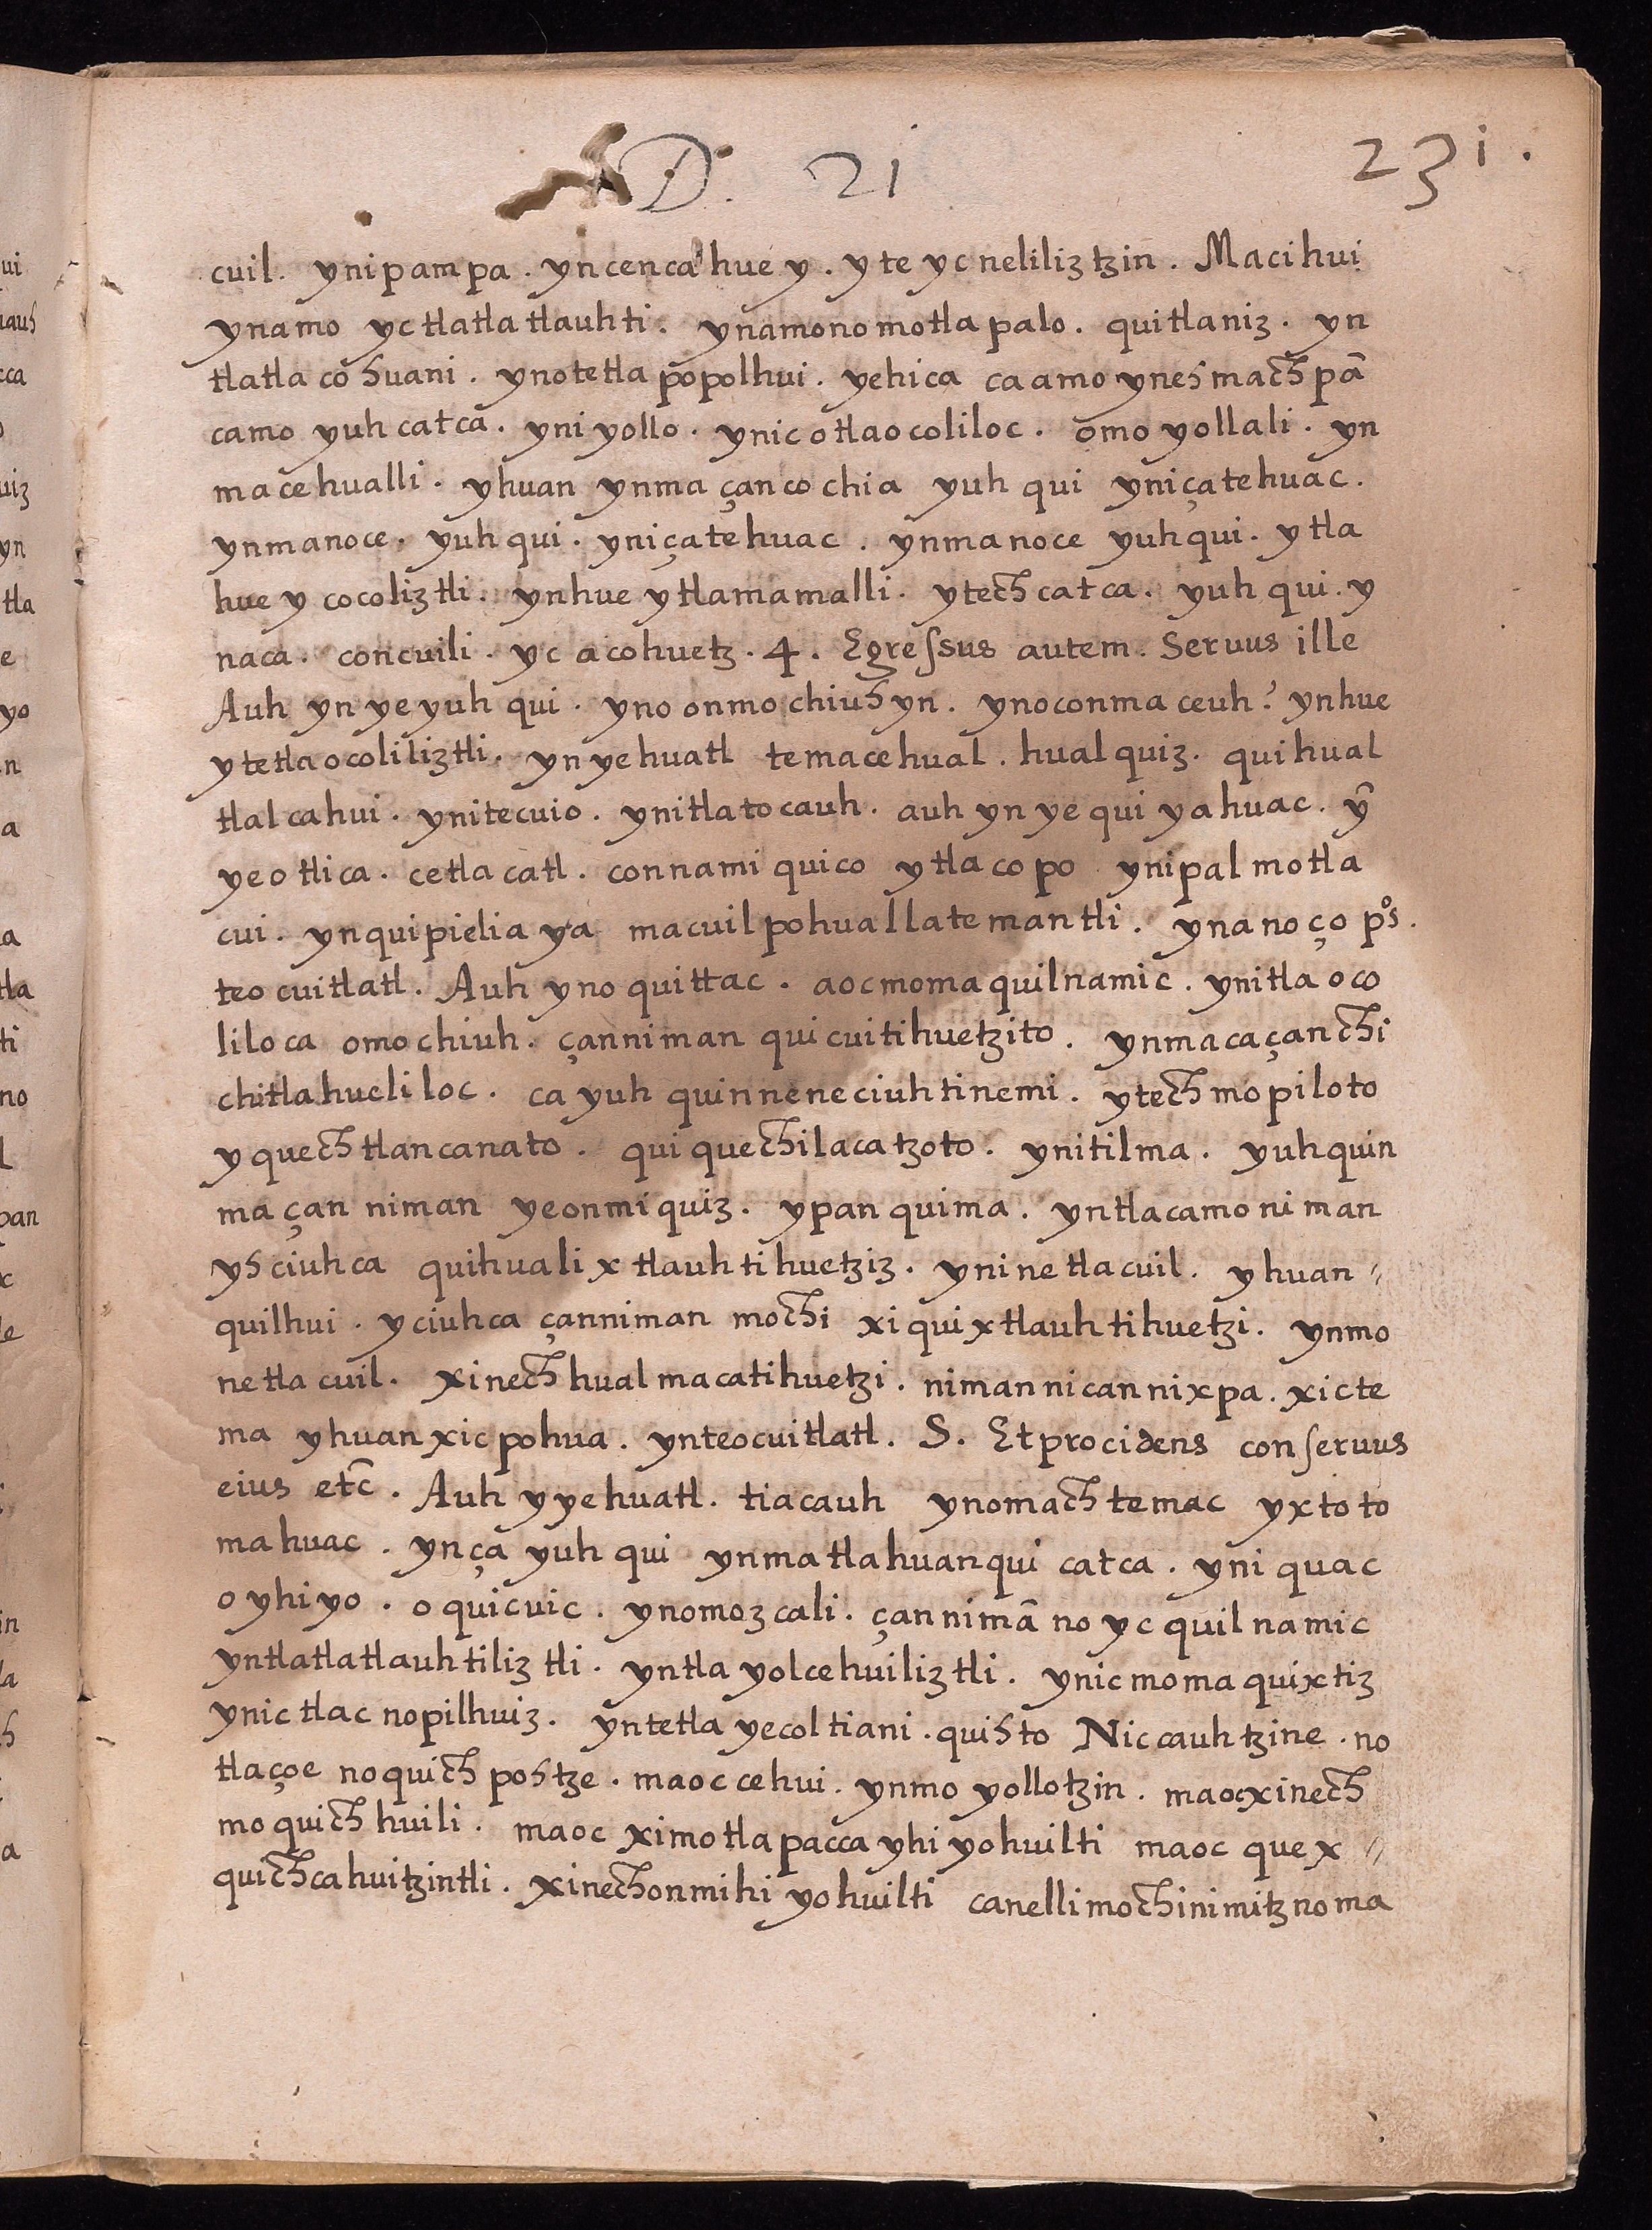 D. 21 231.
cuil. ynipampa. yncenca huey. yteycneliliztzin. Macihui
ynamo yc tlatlatlauhti. ynamonomotlapalo. quitlaniz. yn
tlatlacohuani. ynotetlapopolhui. yehica caamo yneh machpā
camo yuh catca. yni yollo. ynic otlaocoliloc. omoyollali. yn
macehualli. yhuan ynma çancochia yuh qui yniçatehuac.
ynmanoce. yuh qui. yniçatehuac. ynmanoce yuhqui. ytla
huey cocoliztli. ynhuey tlamamalli. ytech catca. yuh qui. y
naca. concuili. yc acohuetz. 4. Egressus autem. Seruus ille
Auh yn ye yuh qui. yno onmochiuh yn. ynoconmaceuh? ynhue
y tetlaocoliliztli. yn yehuatl temacehual. hualquiz. quihual
tlalcahui. ynitecuio. ynitlatocauh. auh yn ye quiyahuac. yn̄
yeotlica. cetlacatl. connamiquico ytlacopo ynipalmotla
cui. ynquipielia ya macuilpohuallatemantli. ynanoço p̊s.
teocuitlatl. Auh ynoquittac. aocmomaquilnamic. ynitlaoco
liloca omochiuh. çanniman quicuitihuetzito. ynmacaçanchi
chitlahueliloc. ca yuh quinneneciuhtinemi. ytech mopiloto
yquechtlancanato. quiquechilacatzoto. ynitilma. yuhquin
ma çan niman yeonmiquiz. ypan quima. yntlacamo niman
yhciuhca quihualixtlauhtihuetziz. yninetlacuil. yhuan "
quilhui. yciuhca çanniman mochi xiquixtlauhtihuetzi. ynmo
netlacuil. xinechhualmacatihuetzi. nimannicannixpa. xicte
ma yhuan xicpohua. ynteocuitlatl. S. Etprocidens conseruus
eius etc̄. Auh yyehuatl. tiacauh ynomachtemac yxtoto
mahuac. ynça yuh qui ynmatlahuanqui catca. yniquac
oyhiyo. oquicuic. ynomozcali. çannimā no yc quilnamic
yntlatlatlauhtiliztli. yntlayolcehuiliztli. ynicmomaquixtiz
ynictlacnopilhuiz. yntetlayecoltiani. quihto Niccauhtzine. no
tlaçoe noquichpohtze. maoccehui. ynmoyollotzin. maocxinech
moquichhuili. maoc ximotlapaccayhiyohuilti maoc quex "
quichcahuitzintli. xinechonmihiyohuilti canellimochinimitznoma